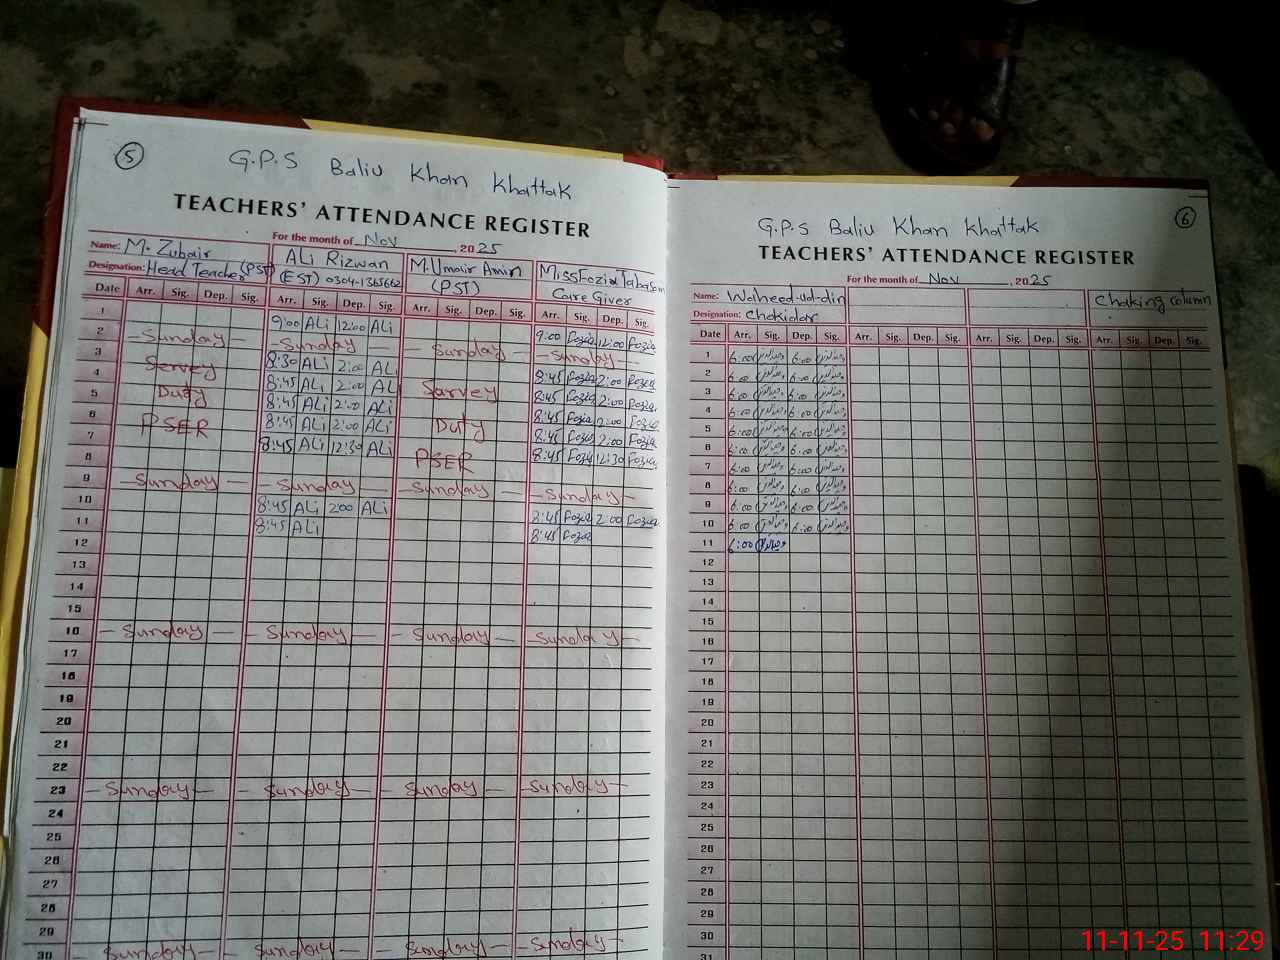 5
G.P.S Baliu Khan Khattak
TEACHERS' ATTENDANCE REGISTER
For the month of Nov, 2025
Name: M. Zubair ALi Rizwan M. Umair Amin Miss Fozia Tabasom
Designation: Head Teacher (PST) (EST) 0304-1365662 (PST) Care Giver
Date Arr. Sig. Dep. Sig. Arr. Sig. Dep. Sig. Arr. Sig. Dep. Sig. Arr. Sig. Dep. Sig.
1 9:00 ALi 12:00 ALi 9:00 Fozia 12:00 Fozia
2 Sunday Sunday Sunday Sunday
3 Servey 8:30 ALi 2:00 ALi 8:45 Fozia 2:00 Fozia
4 8:45 ALi 2:00 ALi Sarvey 8:45 Fozia 2:00 Fozia
5 Duty 8:45 ALi 2:00 ALi 8:45 Fozia 2:00 Fozia
6 PSER 8:45 ALi 2:00 ALi Duty 8:45 Fozia 2:00 Fozia
7 8:45 ALi 12:30 ALi PSER 8:45 Fozia 12:30 Fozia
8
9 Sunday Sunday Sunday Sunday
10 8:45 ALi 2:00 ALi 8:45 Fozia 2:00 Fozia
11 8:45 ALi 8:45 Fozia
12
13
14
15
16 Sunday Sunday Sunday Sunday
17
18
19
20
21
22
23 Sunday Sunday Sunday Sunday
24
25
26
27
28
29
30 Sunday Sunday Sunday Sunday
6
G.P.S Baliu Khan Khattak
TEACHERS' ATTENDANCE REGISTER
For the month of Nov, 2025
Name: Waheed-ud-din Chaking column
Designation: Chokidar
Date Arr. Sig. Dep. Sig. Arr. Sig. Dep. Sig. Arr. Sig. Dep. Sig. Arr. Sig. Dep. Sig.
1 6:00 6:00
2 6:00 6:00
3 6:00 6:00
4 6:00 6:00
5 6:00 6:00
6 6:00 6:00
7 6:00 6:00
8 6:00 6:00
9 6:00 6:00
10 6:00 6:00
11 6:00
12
13
14
15
16
17
18
19
20
21
22
23
24
25
26
27
28
29
30
31
11-11-25 11:29